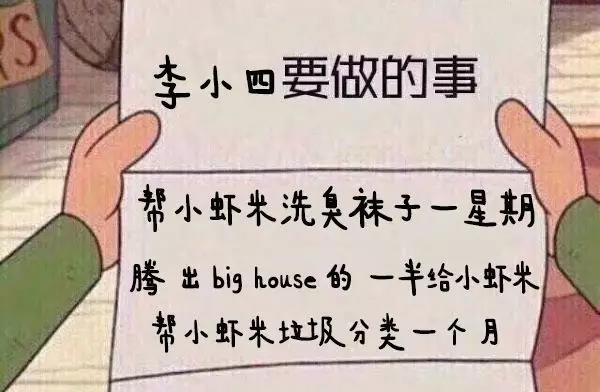 RS
李小四要做的事
帮小虾米洗臭袜子一星期
腾出big house的一半给小虾米
帮小虾米垃圾分类一个月